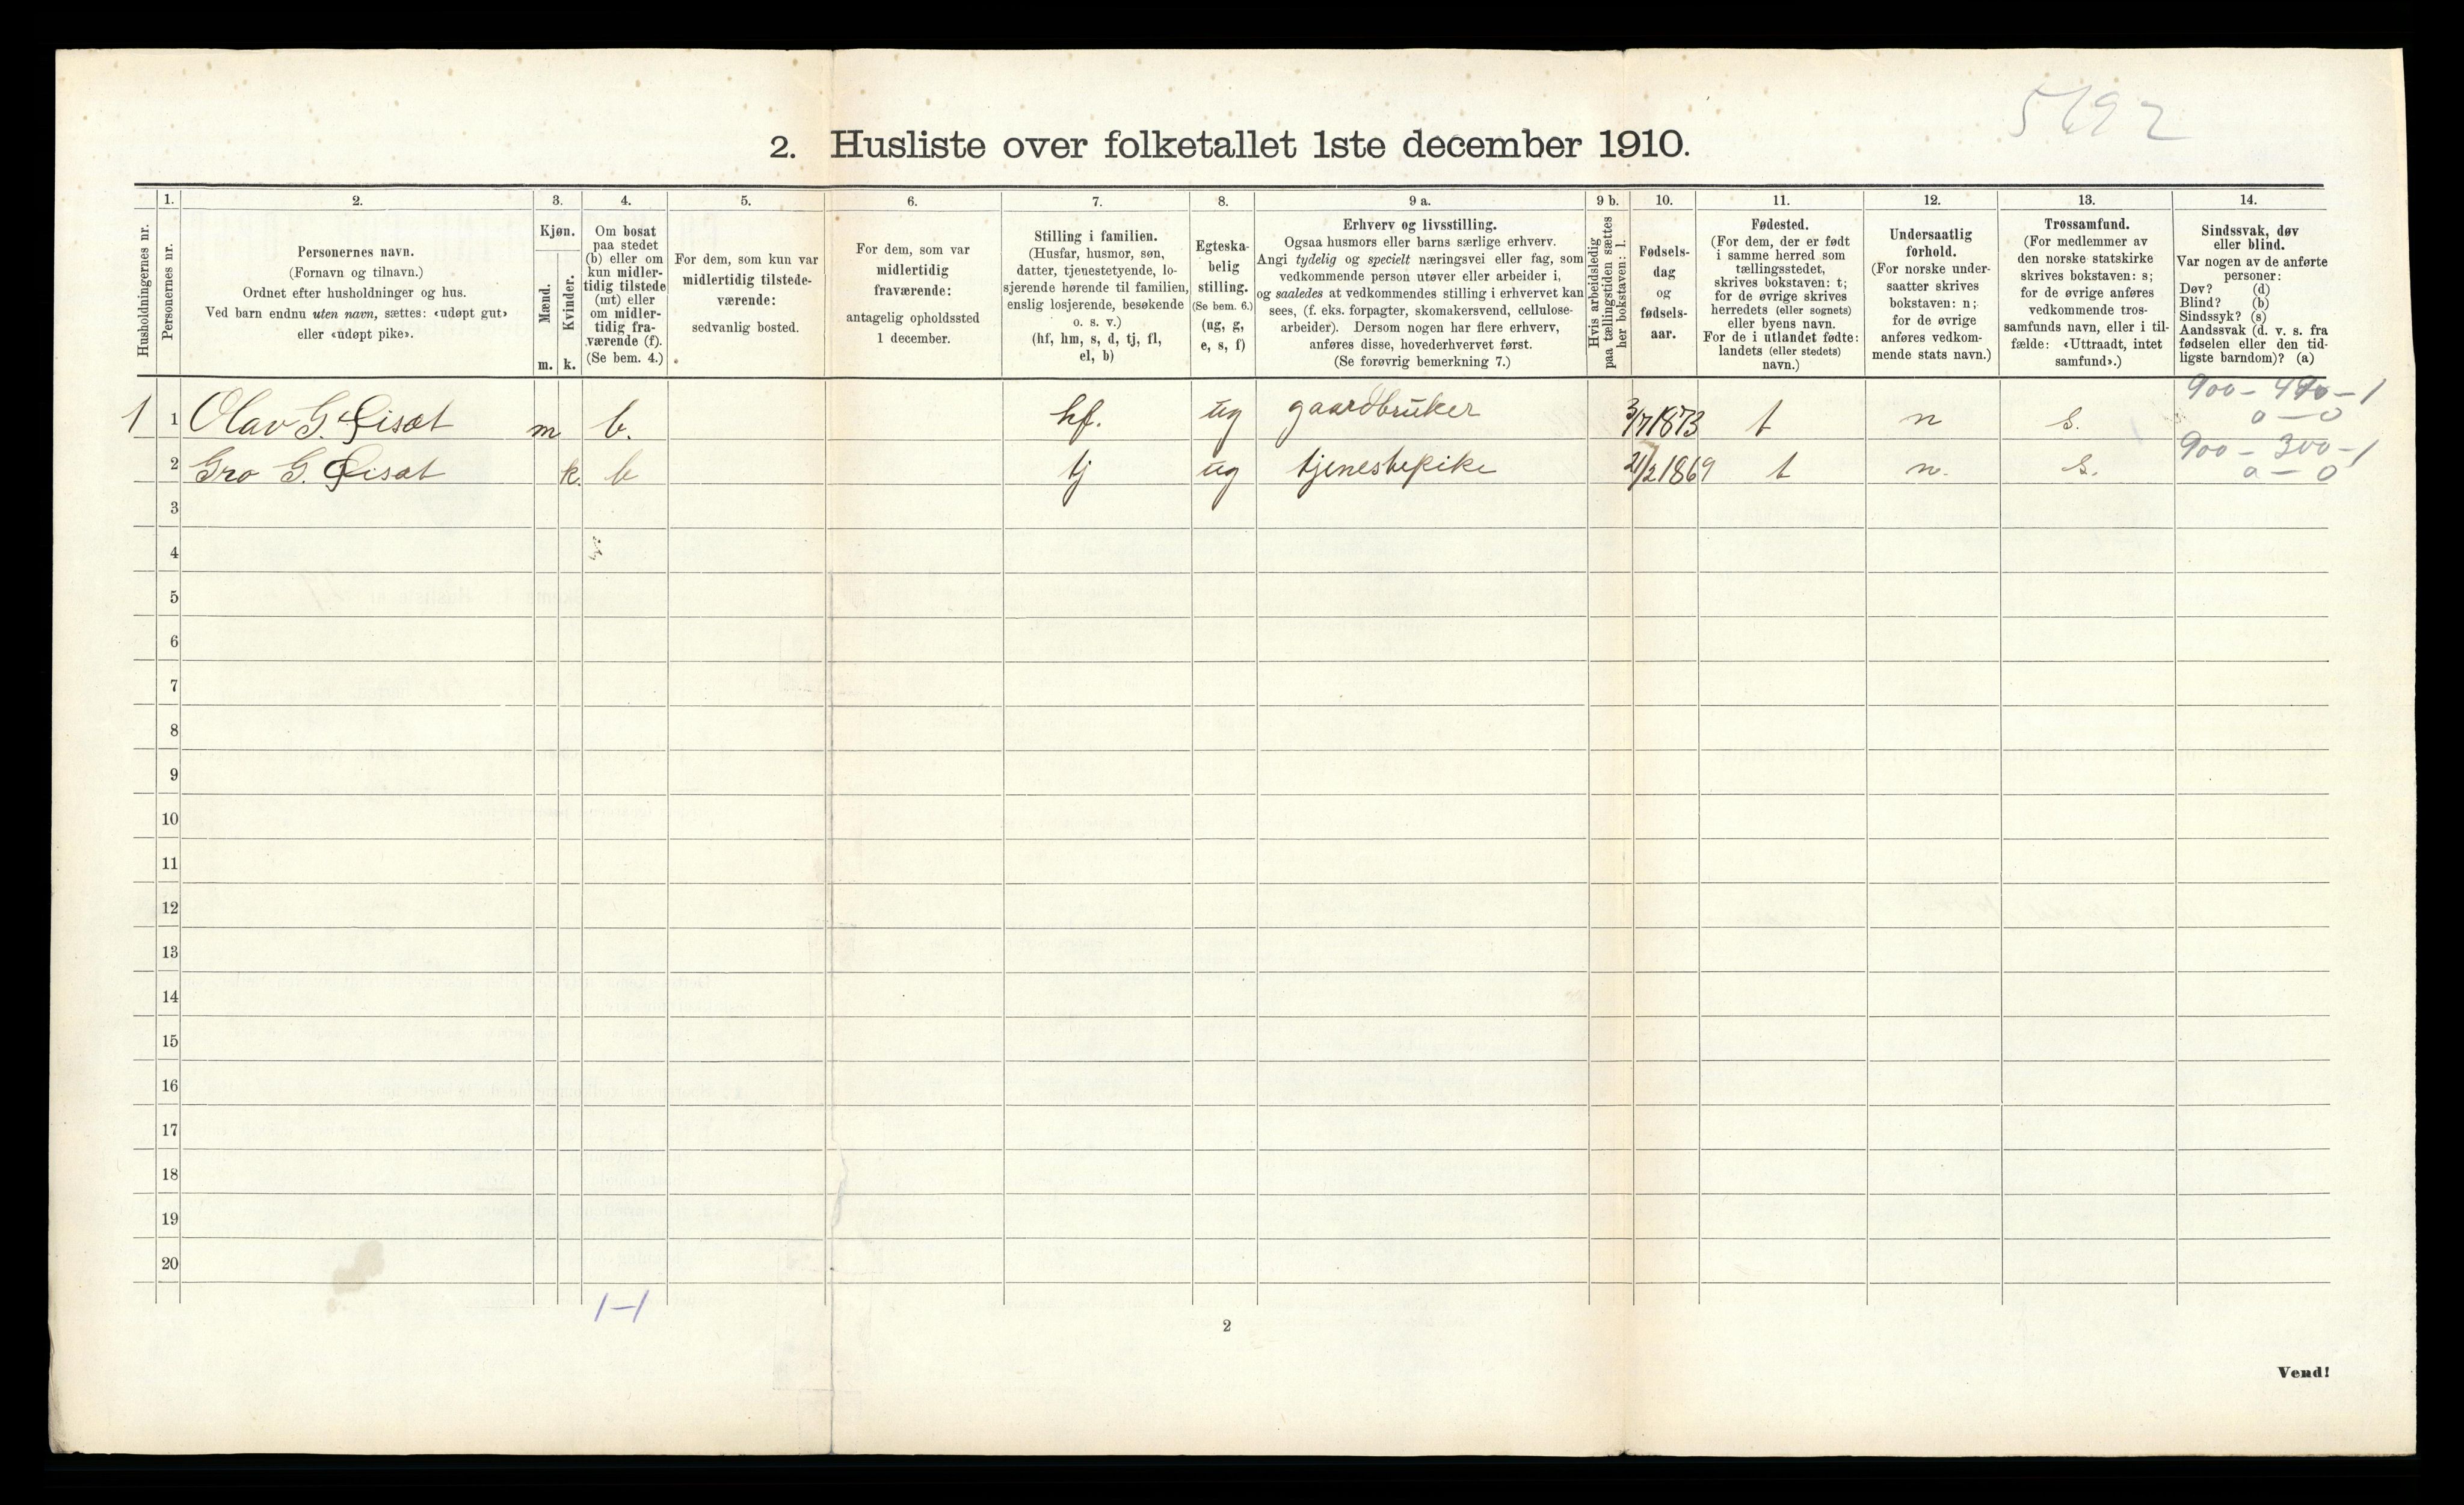 5692
2. Husliste over folketallet 1ste december 1910.
Husholdningernes nr.
1.
Personernes nr.
2.
Personernes navn.
(Fornavn og tilnavn.)
Ordnet efter husholdninger og hus.
Ved barn endnu uten navn, sættes: «udøpt gut»
eller «udøpt pike».
3.
Kjøn.
Mænd.
m.
Kvinder.
k.
4.
Om bosat
paa stedet
(b) eller om
kun midler-
tidig tilstede
(mt) eller
om midler-
tidig fra-
værende (f).
(Se bem. 4.)
5.
For dem, som kun var
midlertidig tilstede-
værende:
sedvanlig bosted.
6.
For dem, som var
midlertidig
fraværende:
antagelig opholdssted
1 december.
7.
Stilling i familien.
(Husfar, husmor, søn,
datter, tjenestetyende, lo-
sjerende hørende til familien,
enslig losjerende, besøkende
o. s. v.)
(hf, hm, s, d, tj, fl,
el, b)
8.
Egteska-
belig
stilling.
(Se bem. 6.)
(ug, g,
e, s, f)
9 a.
Erhverv og livsstilling.
Ogsaa husmors eller barns særlige erhverv.
Angi tydelig og specielt næringsvei eller fag, som
vedkommende person utøver eller arbeider i,
og saaledes at vedkommendes stilling i erhvervet kan
sees, (f. eks. forpagter, skomakersvend, cellulose-
arbeider). Dersom nogen har flere erhverv,
anføres disse, hovederhvervet først.
(Se forøvrig bemerkning 7.)
9 b.
Hvis arbeidsledig
paa tællingstiden sættes
her bokstaven: l.
10.
Fødsels-
dag
og
fødsels-
aar.
11.
Fødested.
(For dem, der er født
i samme herred som
tællingsstedet,
skrives bokstaven: t;
for de øvrige skrives
herredets (eller sognets)
eller byens navn.
For de i utlandet fødte:
landets (eller stedets)
navn.)
12.
Undersaatlig
forhold.
(For norske under-
saatter skrives
bokstaven: n;
for de øvrige
anføres vedkom-
mende stats navn.)
13.
Trossamfund.
(For medlemmer av
den norske statskirke
skrives bokstaven: s;
for de øvrige anføres
vedkommende tros-
samfunds navn, eller i til-
fælde: «Uttraadt, intet
samfund».)
14.
Sindssvak, døv
eller blind.
Var nogen av de anførte
personer:
Døv? (d)
Blind? (b)
Sindssyk? (s)
Aandssvak (d. v. s. fra
fødselen eller den tid-
ligste barndom)? (a)
1 1 Olav G. m b. hf. ug gaardbruker 3/7 1873 t n s. 900 - 490 - 1
0 - 0
2 Gro G. k. b tj ug tjenestepike 21/2 1869 t n. s. 900 - 300 - 1
0 - 0
3
4
5
6
7
8
9
10
11
12
13
14
15
16
17
18
19
20
1-1
2
Vend!